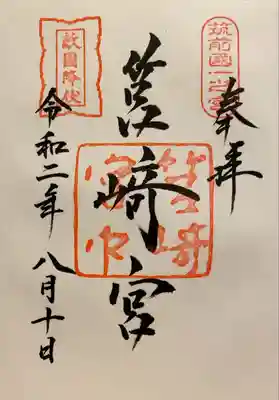 奉拝
筑前國一之宮
筥崎宮
筥崎宮印
敵國降伏
令和二年 八月十日